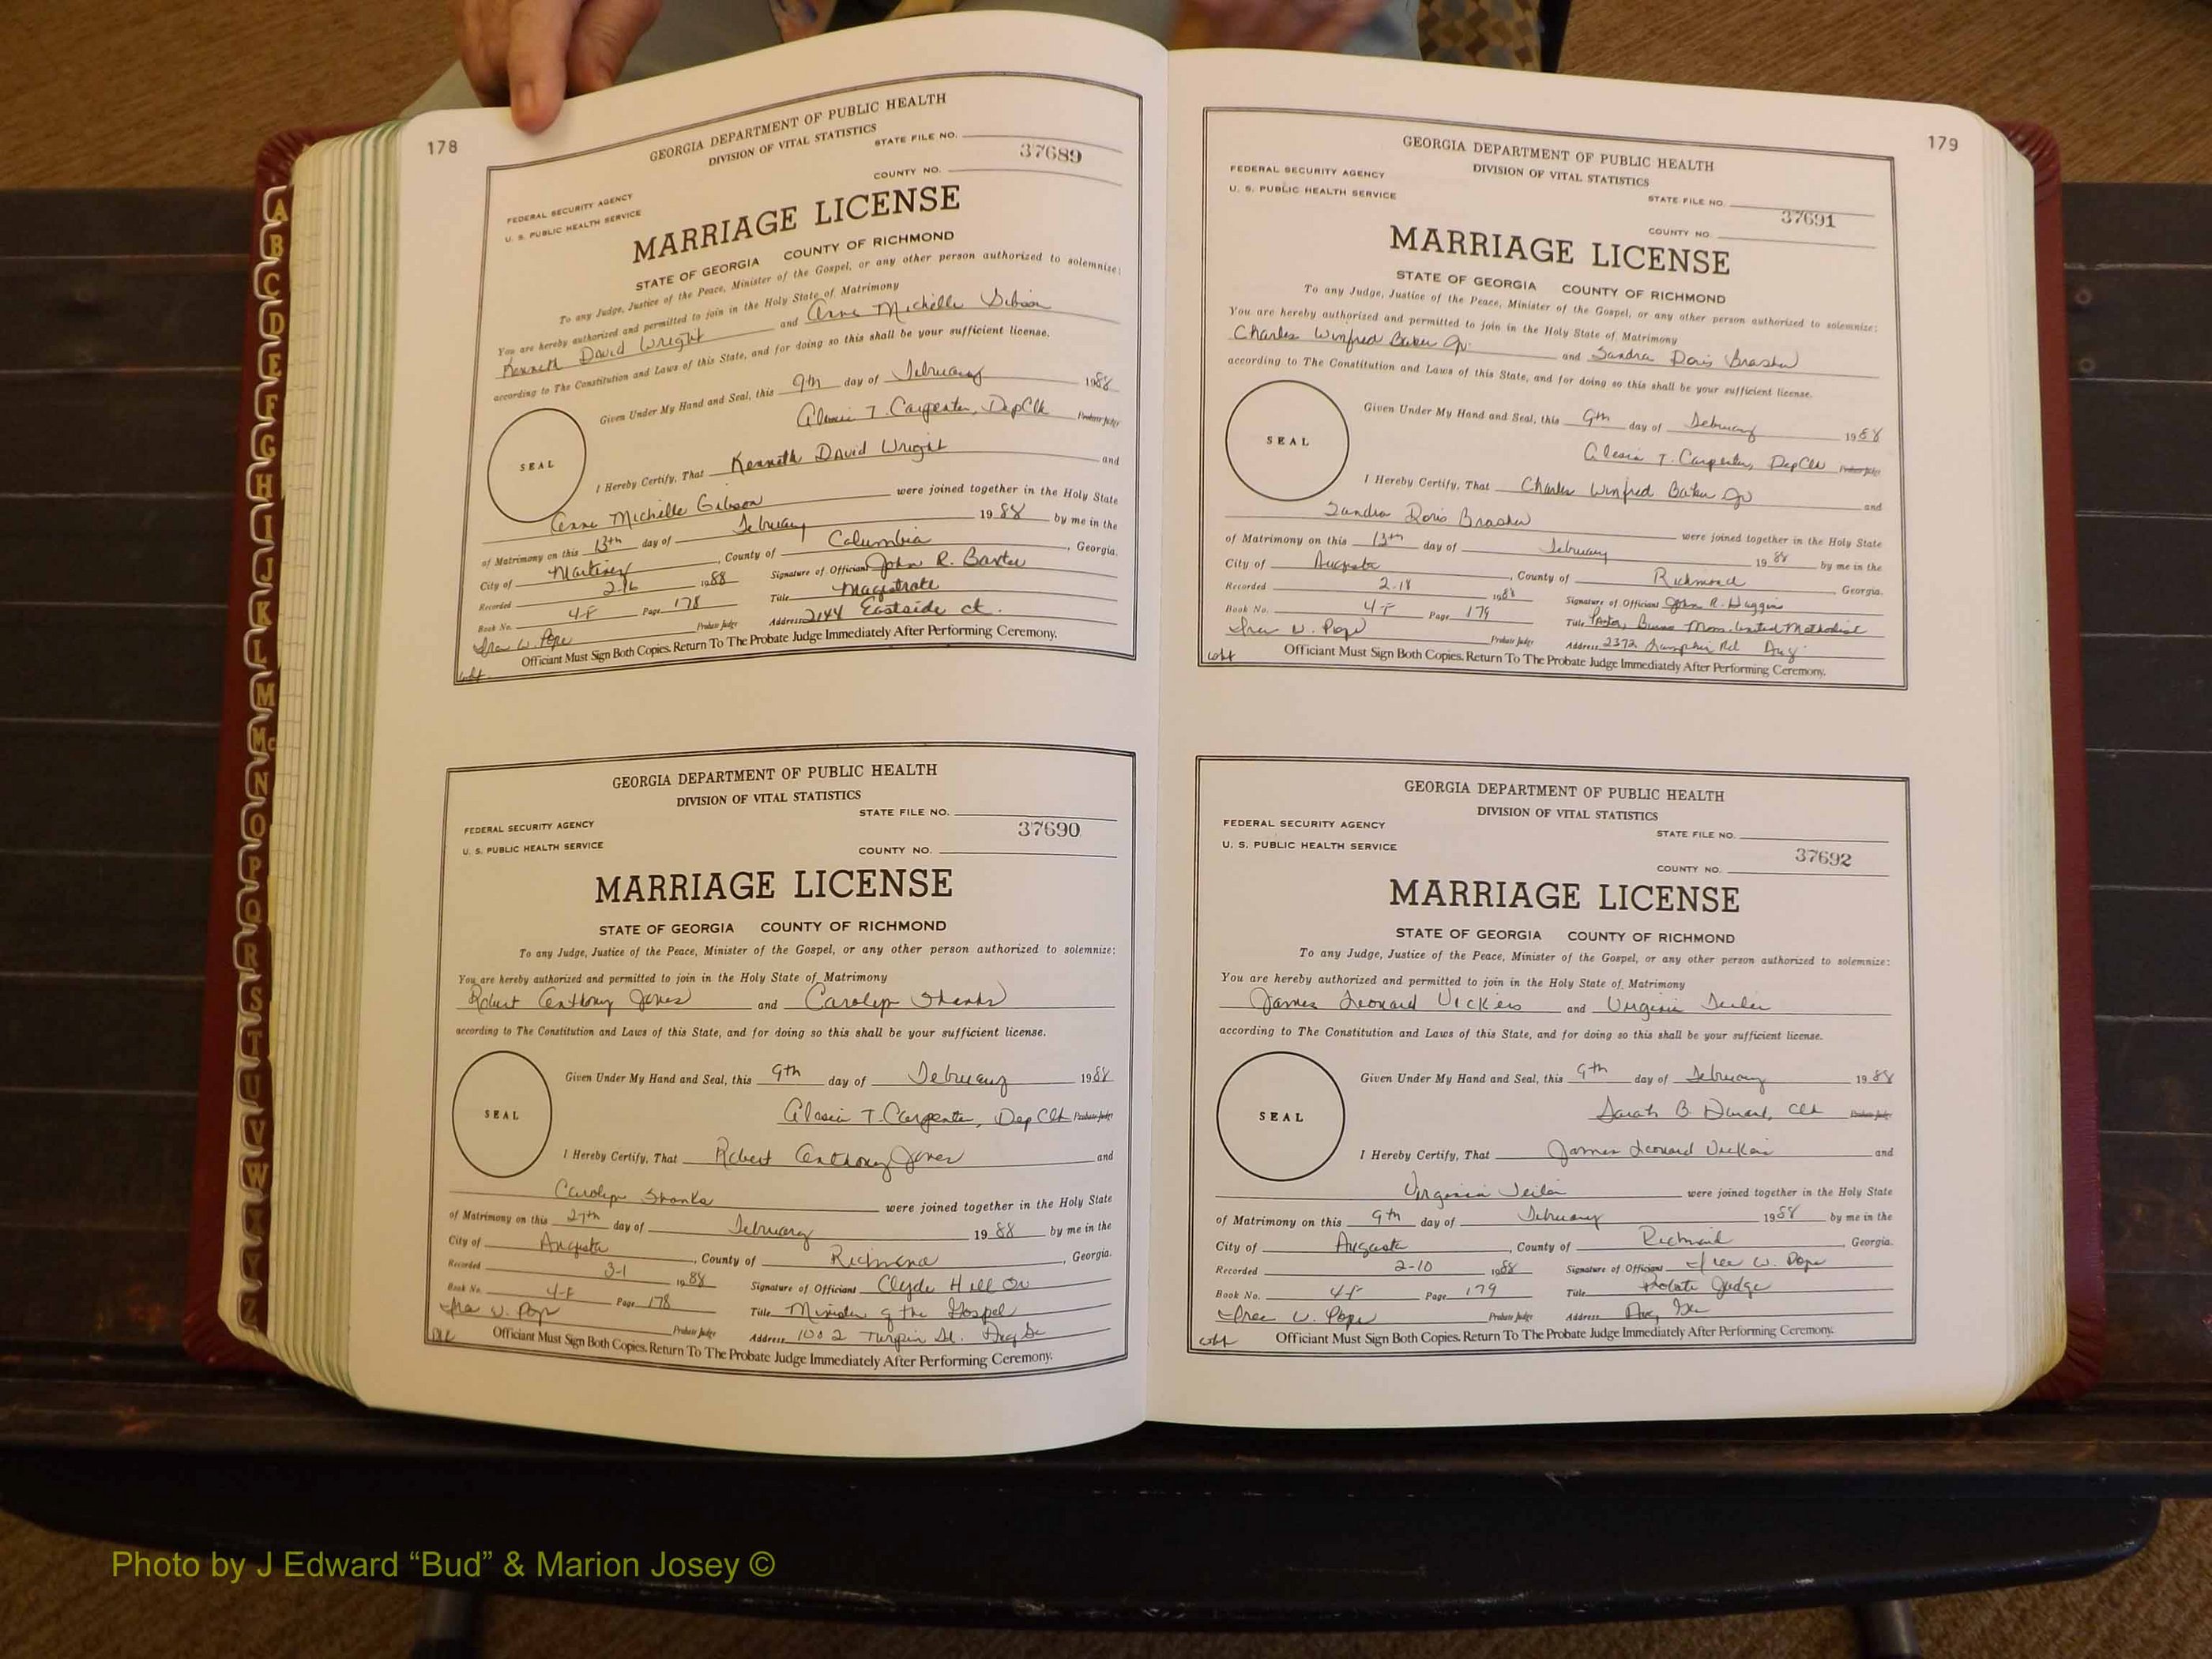 178
GEORGIA DEPARTMENT OF PUBLIC HEALTH
DIVISION OF VITAL STATISTICS
STATE FILE NO.
37689
FEDERAL SECURITY AGENCY
U. S. PUBLIC HEALTH SERVICE
COUNTY NO.
MARRIAGE LICENSE
STATE OF GEORGIA COUNTY OF RICHMOND
To any Judge, Justice of the Peace, Minister of the Gospel, or any other person authorized to solemnize:
You are hereby authorized and permitted to join in the Holy State of Matrimony
Kenneth David Wright and Anne Michelle Gibson
according to The Constitution and Laws of this State, and for doing so this shall be your sufficient license.
Given Under My Hand and Seal, this 9th day of February 1988
SEAL
Alesia T. Carpenter, Dep Clk Probate Judge
I Hereby Certify, That Kenneth David Wright and
Anne Michelle Gibson were joined together in the Holy State
of Matrimony on this 13th day of February 1988 by me in the
City of Martinez, County of Columbia, Georgia.
Recorded 2-16 1988 Signature of Officiant John R. Baxter
Book No. 4-F Page 178 Title Magistrate
Ira W. Pope Probate Judge Address 2144 Eastside ct.
Officiant Must Sign Both Copies. Return To The Probate Judge Immediately After Performing Ceremony.
GEORGIA DEPARTMENT OF PUBLIC HEALTH
DIVISION OF VITAL STATISTICS
STATE FILE NO.
37690
FEDERAL SECURITY AGENCY
U. S. PUBLIC HEALTH SERVICE
COUNTY NO.
MARRIAGE LICENSE
STATE OF GEORGIA COUNTY OF RICHMOND
To any Judge, Justice of the Peace, Minister of the Gospel, or any other person authorized to solemnize:
You are hereby authorized and permitted to join in the Holy State of Matrimony
Robert Anthony Jones and Carolyn Shanks
according to The Constitution and Laws of this State, and for doing so this shall be your sufficient license.
Given Under My Hand and Seal, this 9th day of February 1988
SEAL
Alesia T. Carpenter, Dep Clk Probate Judge
I Hereby Certify, That Robert Anthony Jones and
Carolyn Shanks were joined together in the Holy State
of Matrimony on this 27th day of February 1988 by me in the
City of Augusta, County of Richmond, Georgia.
Recorded 3-1 1988 Signature of Officiant Clyde Hill
Book No. 4-F Page 178 Title Minister of the Gospel
Ira W. Pope Probate Judge Address 1002 Turpin St. Aug
Officiant Must Sign Both Copies. Return To The Probate Judge Immediately After Performing Ceremony.
179
GEORGIA DEPARTMENT OF PUBLIC HEALTH
DIVISION OF VITAL STATISTICS
FEDERAL SECURITY AGENCY
U. S. PUBLIC HEALTH SERVICE
STATE FILE NO.
37691
COUNTY NO.
MARRIAGE LICENSE
STATE OF GEORGIA COUNTY OF RICHMOND
To any Judge, Justice of the Peace, Minister of the Gospel, or any other person authorized to solemnize:
You are hereby authorized and permitted to join in the Holy State of Matrimony
Charles Winfred Baker Jr. and Sandra Doris Brasher
according to The Constitution and Laws of this State, and for doing so this shall be your sufficient license.
Given Under My Hand and Seal, this 9th day of February 1988
SEAL
Alesia T. Carpenter, Dep Clk Probate Judge
I Hereby Certify, That Charles Winfred Baker Jr and
Sandra Doris Brasher were joined together in the Holy State
of Matrimony on this 13th day of February 1988 by me in the
City of Augusta, County of Richmond Georgia.
Recorded 2-18 1988 Signature of Officiant John R.
Book No. 4-F Page 179 Title Pastor, Burns Mem. United Methodist
Ira W. Pope Probate Judge Address 2372 Rd Aug
Officiant Must Sign Both Copies. Return To The Probate Judge Immediately After Performing Ceremony.
GEORGIA DEPARTMENT OF PUBLIC HEALTH
DIVISION OF VITAL STATISTICS
FEDERAL SECURITY AGENCY
U. S. PUBLIC HEALTH SERVICE
STATE FILE NO.
37692
COUNTY NO.
MARRIAGE LICENSE
STATE OF GEORGIA COUNTY OF RICHMOND
To any Judge, Justice of the Peace, Minister of the Gospel, or any other person authorized to solemnize:
You are hereby authorized and permitted to join in the Holy State of Matrimony
James Leonard Vickers and Virginia
according to The Constitution and Laws of this State, and for doing so this shall be your sufficient license.
Given Under My Hand and Seal, this 9th day of February 1988
SEAL
Sarah B. Clk Probate Judge
I Hereby Certify, That James Leonard Vickers and
Virginia were joined together in the Holy State
of Matrimony on this 9th day of February 1988 by me in the
City of Augusta, County of Richmond Georgia.
Recorded 2-10 1988 Signature of Officiant Ira W. Pope
Book No. 4-F Page 179 Title Probate Judge
Ira W. Pope Probate Judge Address Aug, Ga
Officiant Must Sign Both Copies. Return To The Probate Judge Immediately After Performing Ceremony.
A
B
C
D
E
F
G
H
I
J
K
L
M
Mc
N
O
P
Q
R
S
T
U
V
W
X
Y
Z
Photo by J Edward “Bud” & Marion Josey ©